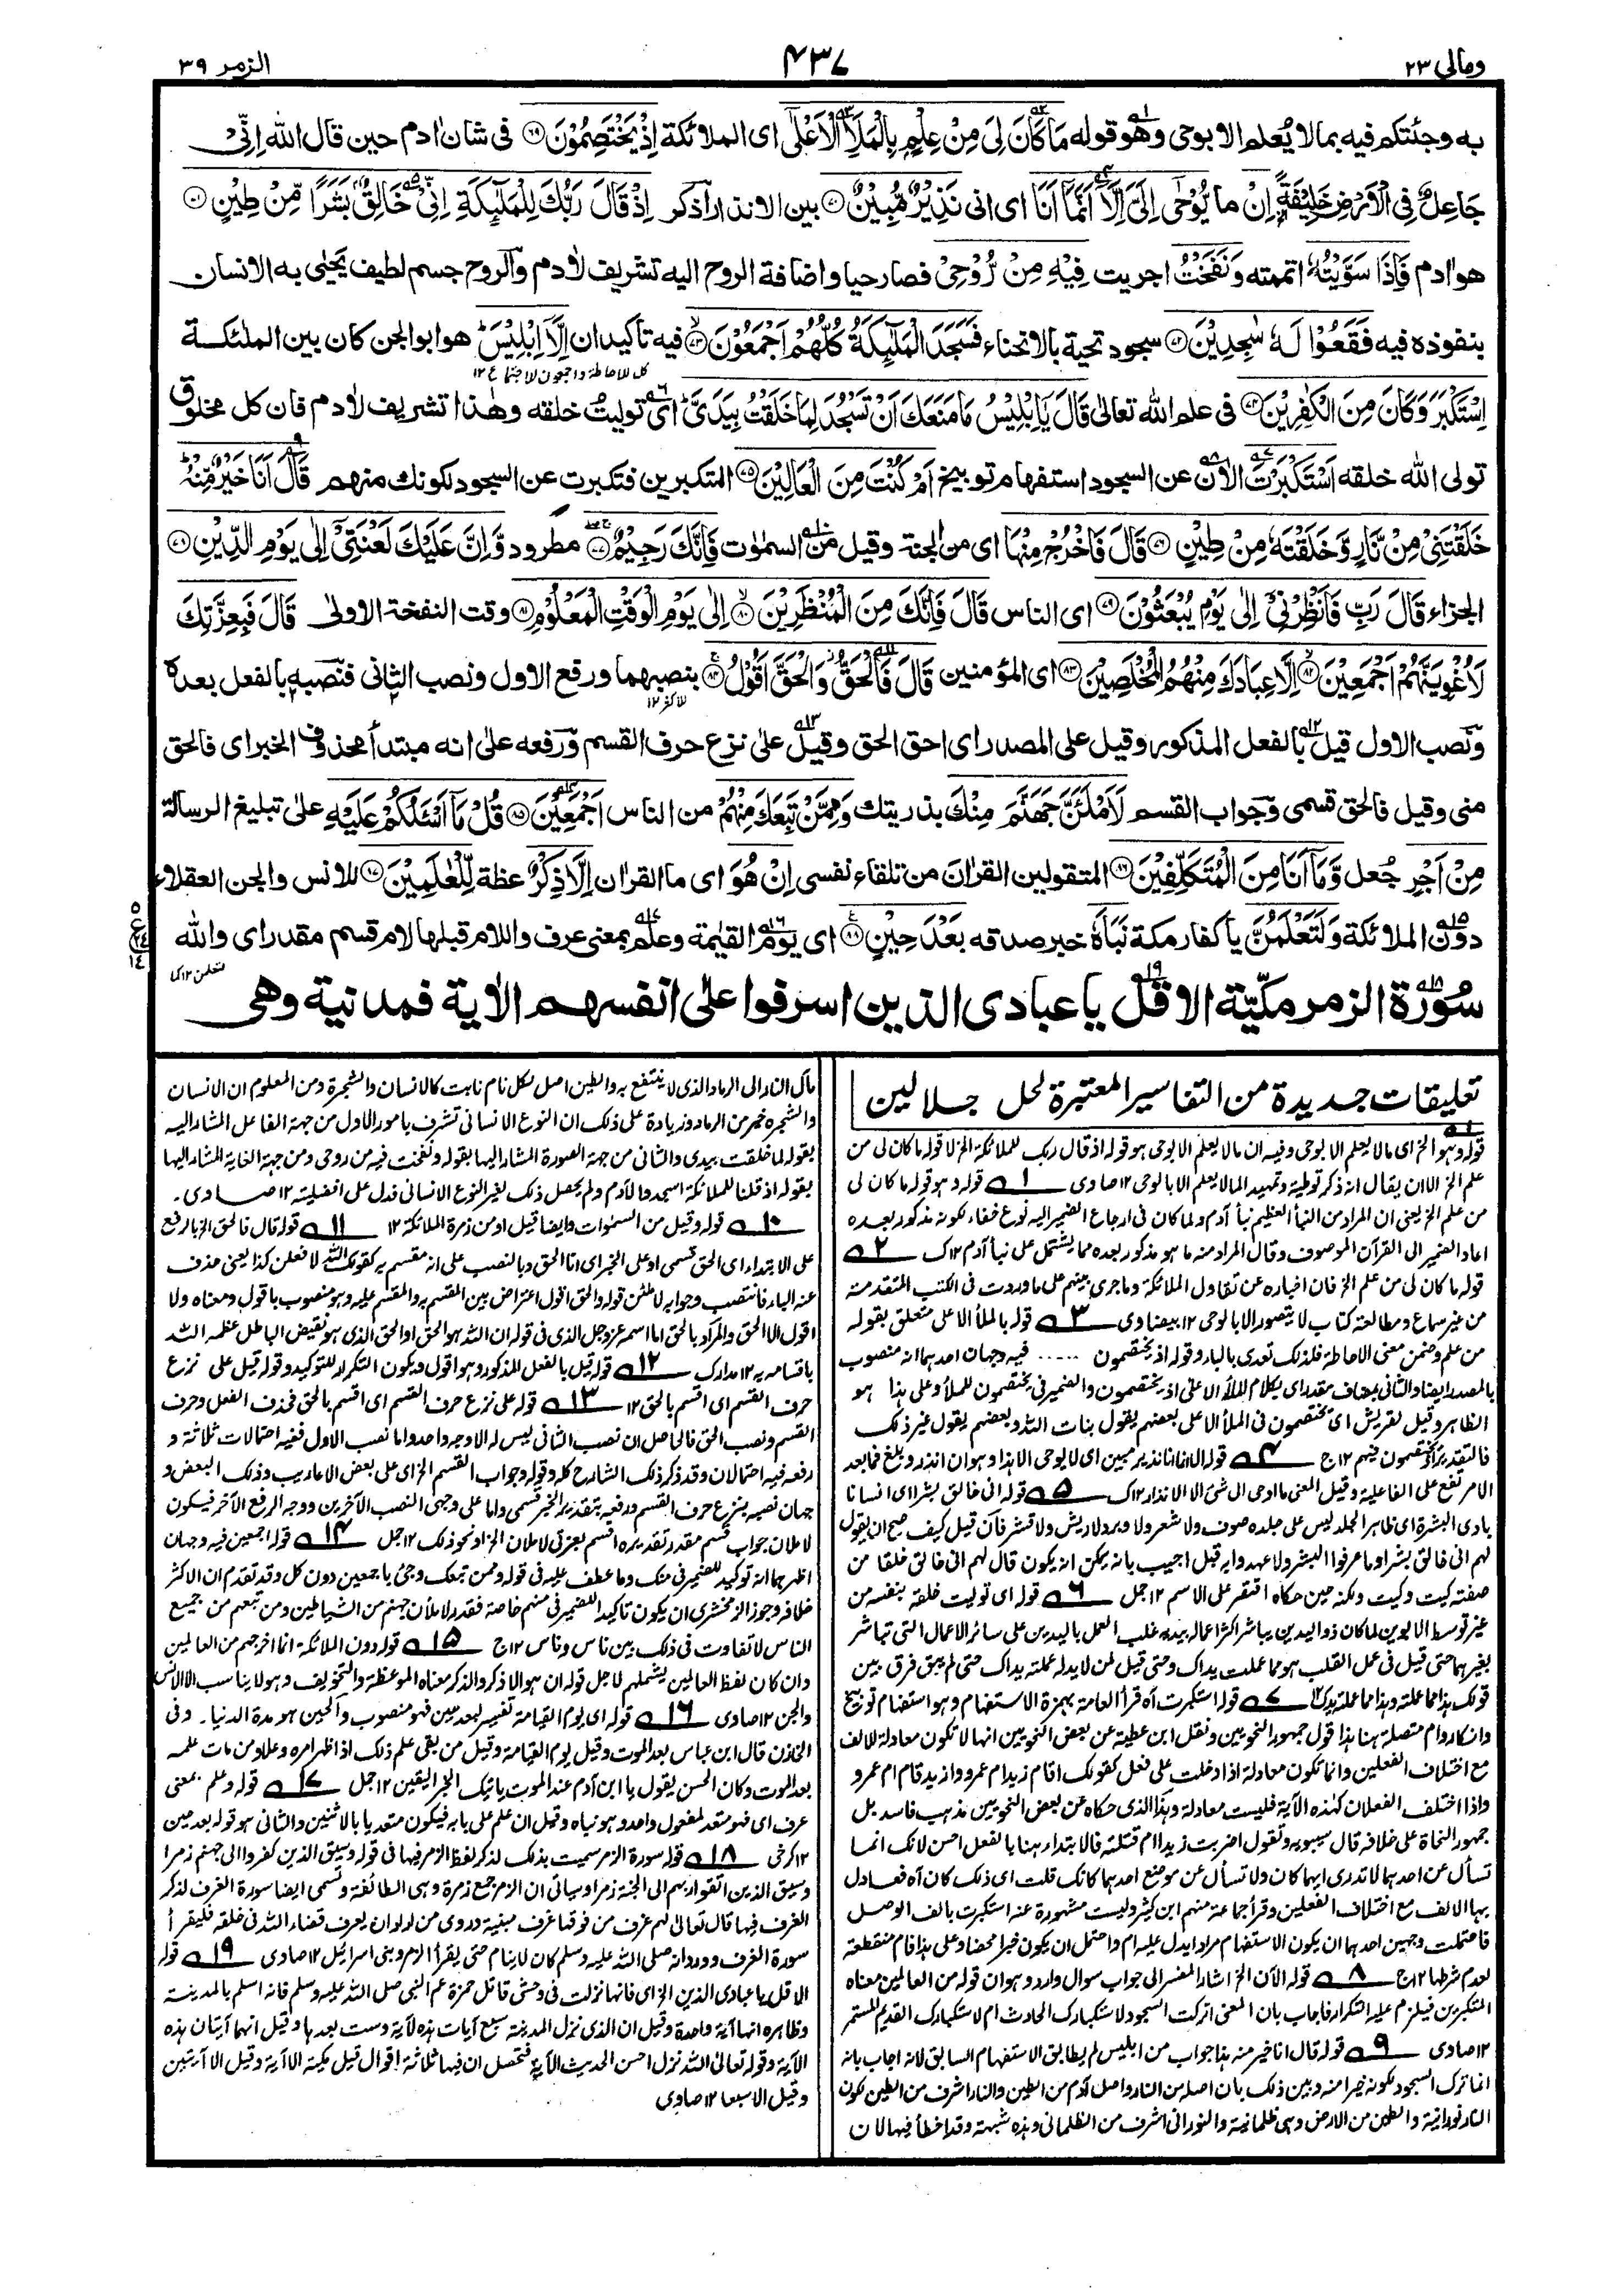 ومالی ۲۳
۴۳۷
الزمر ۳۹
به وجئتكم فيه بمالا يُعلم الا بوحى وهو قوله مَا كَانَ لِيَ مِنْ عِلْمٍۭ بِالْمَلَاِ الْاَعْلٰٓى اى الملائكة اِذْ يَخْتَصِمُوْنَ ۶۹ فى شان اٰدم حين قال الله اِنِّىْ
جَاعِلٌ فِى الْاَرْضِ خَلِيْفَةً اِنْ ما يُوْحٰٓى اِلَيَّ اِلَّآ اَنَّمَآ اَنَا اى انى نَذِيْرٌ مُّبِيْنٌ ۷۰ بين الانذار اُذكر اِذْ قَالَ رَبُّكَ لِلْمَلٰٓئِكَةِ اِنِّيْ خَالِقٌۢ بَشَرًا مِّنْ طِيْنٍ ۷۱
هو اٰدم فَاِذَا سَوَّيْتُهٗ اتممته وَنَفَخْتُ اجريت فِيْهِ مِنْ رُّوْحِيْ فصار حيا واضافة الروح اليه تشريف لاٰدم والروح جسم لطيف يحيٰى به الانسان
بنفوذه فيه فَقَعُوْا لَهٗ سٰجِدِيْنَ ۷۲ سجود تحية بالانحناء فَسَجَدَ الْمَلٰٓئِكَةُ كُلُّهُمْ اَجْمَعُوْنَ ۷۳ فيه تاكيدان اِلَّآ اِبْلِيْسَ ؕ هو ابو الجن كان بين الملئكة
كل للاحاطة واجمعون للاجتماع ۱۲
اِسْتَكْبَرَ وَكَانَ مِنَ الْكٰفِرِيْنَ ۷۴ فى علم الله تعالىٰ قَالَ يٰٓاِبْلِيْسُ مَا مَنَعَكَ اَنْ تَسْجُدَ لِمَا خَلَقْتُ بِيَدَيَّ ؕ اى توليت خلقه وهٰذا تشريف لاٰدم فان كل مخلوق
تولى الله خلقه اَسْتَكْبَرْتَ الاٰن عن السجود استفهام توبيخ اَمْ كُنْتَ مِنَ الْعَالِيْنَ ۷۵ المتكبرين فتكبرت عن السجود لكونك منهم قَالَ اَنَا خَيْرٌ مِّنْهُ ؕ
خَلَقْتَنِيْ مِنْ نَّارٍ وَّخَلَقْتَهٗ مِنْ طِيْنٍ ۷۶ قَالَ فَاخْرُجْ مِنْهَا اى من الجنة وقيل من السمٰوٰت فَاِنَّكَ رَجِيْمٌ ۷۷ مطرود وَّاِنَّ عَلَيْكَ لَعْنَتِيْٓ اِلٰى يَوْمِ الدِّيْنِ ۷۸
الجزاء قَالَ رَبِّ فَاَنْظِرْنِيْٓ اِلٰى يَوْمِ يُبْعَثُوْنَ ۷۹ اى الناس قَالَ فَاِنَّكَ مِنَ الْمُنْظَرِيْنَ ۸۰ اِلٰى يَوْمِ الْوَقْتِ الْمَعْلُوْمِ ۸۱ وقت النفخة الاولىٰ قَالَ فَبِعِزَّتِكَ
لَاُغْوِيَنَّهُمْ اَجْمَعِيْنَ ۸۲ اِلَّا عِبَادَكَ مِنْهُمُ الْمُخْلَصِيْنَ ۸۳ اى المؤمنين قَالَ فَالْحَقُّ وَالْحَقَّ اَقُوْلُ ۸۴ بنصبهما ورفع الاول ونصب الثانى فنصبه بالفعل بعده
للاكثر ۱۲
ونصب الاول قيل بالفعل المذكور وقيل على المصدر اى احق الحق وقيل علىٰ نزع حرف القسم ورفعه علىٰ انه مبتدأ محذوف الخبر اى فالحق
منى وقيل فالحق قسمى وجواب القسم لَاَمْلَـَٔنَّ جَهَنَّمَ مِنْكَ بذريتك وَمِمَّنْ تَبِعَكَ مِنْهُمْ من الناس اَجْمَعِيْنَ ۸۵ قُلْ مَآ اَسْـَٔلُكُمْ عَلَيْهِ علىٰ تبليغ الرسالة
مِنْ اَجْرٍ جُعل وَّمَآ اَنَا مِنَ الْمُتَكَلِّفِيْنَ ۸۶ المتقولين القراٰن من تلقاء نفسى اِنْ هُوَ اى ما القراٰن اِلَّا ذِكْرٌ عظة لِّلْعٰلَمِيْنَ ۸۷ للانس والجن العقلاء
دون الملائكة وَلَتَعْلَمُنَّ يا كفار مكة نَبَاَهٗ خبر صدقه بَعْدَ حِيْنٍ ۸۸ اى يوم القيٰمة وعلم بمعنى عرف واللام قبلها لام قسم مقدر اى والله
سُوْرَة الزمر مكيّة الا قل يا عبادى الذين اسرفوا علىٰ انفسهم الاٰية فمدنية وهى
تعليقات جديدة من التفاسير المعتبرة لحل جلالين
قوله وهو الخ اى مالا يعلم الا بوحى وفيه ان مالا يعلم الا بوحى هو قوله اذ قال ربك للملائكة الخ لا قوله ما كان لى من
علم الخ الا ان يقال انه ذكر توطية وتمهيدا لما لا يعلم الا بالوحى ۱۲ صاوى ۱ قوله وهو قوله ما كان لى
من علم الخ يعنى ان المراد من النبأ العظيم نبأ آدم ولما كان فى ارجاع الضمير اليه نوع خفاء لكونه مذكور بعده
اعاد الضمير الى القرآن الموصوف وقال المراد منه ما هو مذكور بعده مما يشتمل على نبأ آدم ۱۲ ك ۲
قوله ما كان لى من علم الخ فان اخباره عن تقاول الملائكة وما جرى بينهم على ما وردت فى الكتب المتقدمة
من غير سماع ومطالعة كتاب لا يتصور الا بالوحى ۱۲ بيضاوى ۳ قوله بالملأ الاعلى متعلق بقوله
من علم وضمن معنى الاحاطة فلذلك تعدى بالباء وقوله اذ يختصمون ..... فيه وجهان احدهما انه منصوب
بالمصدر ايضا والثانى بمضاف مقدر اى بكلام الملأ الاعلى اذ يختصمون والضمير فى يختصمون للملأ وعلى هذا هو
الظاهر وقيل لقريش اى يختصمون فى الملأ الاعلى بعضهم يقول بنات الله وبعضهم يقول غير ذلك
فالتقدير اذ يختصمون فيهم ۱۲ ج ۴ قوله الا انما انا نذير مبين اى لا يوحى الا هذا وهو ان انذر وبلغ فما بعد
الامر تفع على الفاعلية وقيل المعنى ما اوحى الى شئ الا الانذار ۱۲ ك ۵ قوله انى خالق بشرا اى انسانا
بادى البشرة اى ظاهر الجلد ليس على جلده صوف ولا شعر ولا وبر ولا ريش ولا قشر فان قيل كيف صح ان يقول
لهم انى خالق بشرا وما عرفوا البشر ولا عهدوا به قبل اجيب بانه يمكن انه يكون قال لهم انى خالق خلقا من
صفته كيت وكيت ولكنه حين حكاه اقتصر على الاسم ۱۲ جمل ۶ قوله اى توليت خلقه بنفسه من
غير توسط الابوين لما كان ذو اليدين يباشر اكثر اعماله بيديه غلب العمل باليدين على سائر الاعمال التى تباشر
بغيرهما حتى قيل فى عمل القلب هو مما عملت يداك وحتى قيل لمن لا يد له عملته يداك حتى لم يبق فرق بين
قولك هذا مما عملته وهذا مما عملته يدك ۱۲ ۷ قوله استكبرت آه قرأ العامة بهمزة الاستفهام وهو استفهام توبيخ
وانكار وام متصلة هنا هذا قول جمهور النحويين ونقل ابن عطية عن بعض النحويين انها لا تكون معادلة للالف
مع اختلاف الفعلين وانما تكون معادلة اذا دخلت على فعل كقولك اقام زيد ام عمرو وازيد قام ام عمرو
واذا اختلف الفعلان كهذه الآية فليست معادلة وهذا الذى حكاه عن بعض النحويين مذهب فاسد بل
جمهور النحاة على خلافه قال سيبويه وتقول اضربت زيدا ام قتلته فالابتداء هنا بالفعل احسن لانك انما
تسأل عن احدهما لا تدرى ايهما كان ولا تسأل عن موضع احدهما كانك قلت اى ذلك كان آه فعادل
بها الالف مع اختلاف الفعلين وقرأ جماعة منهم ابن كثير وليست مشهورة عنه استكبرت بالف الوصل
فاحتملت وجهين احدهما ان يكون الاستفهام مرادا يدل عليه ام واحتمل ان يكون خبرا محضا وعلى هذا فام منقطعة
لعدم شرطها ۱۲ ج ۸ قوله الآن الخ اشار المفسر الى جواب سوال وارد وهو ان قوله من العالمين معناه
المتكبرين فيلزم عليه التكرار فاجاب بان المعنى اتركت السجود لاستكبارك الحادث ام لاستكبارك القديم المستمر
۱۲ صاوى ۹ قوله قال انا خير منه هذا جواب من ابليس لم يطابق الاستفهام السابق لانه اجاب بانه
انما ترك السجود لكونه خيرا منه وبين ذلك بان اصله من النار واصل آدم من الطين والنار اشرف من الطين لكون
النار نورانية والطين من الارض وهى ظلمانية والنورانى اشرف من الظلمانى وهذه شبهة وقد اخطأ فيها لان
مآل النار الى الرماد الذى لا ينتفع به والطين اصل لكل نام نابت كالانسان والشجرة ومن المعلوم ان الانسان
والشجرة خير من الرماد وزيادة على ذلك ان النوع الانسانى تشرف بامور الاول من جهة الفاعل المشار اليه
بقوله لما خلقت بيدى والثانى من جهة الصورة المشار اليها بقوله ونفخت فيه من روحى ومن جهة الغاية المشار اليها
بقوله اذ قلنا للملائكة اسجدوا لآدم ولم يحصل ذلك لغير النوع الانسانى فدل على افضليته ۱۲ صاوى.
۱۰ قوله وقيل من السمٰوات وايضا قيل او من زمرة الملائكة ۱۲ ۱۱ قوله قال فالحق الخ بالرفع
على الابتداء اى الحق قسمى او على الخبر اى انا الحق وبالنصب على انه مقسم به كقولك الله لافعلن كذا يعنى حذف
عنه الباء فانتصب وجوابه لاملئن قوله والحق اقول اعتراض بين المقسم به والمقسم عليه وهو منصوب باقول ومعناه ولا
اقول الا الحق والمراد بالحق اما اسمه عزوجل الذى فى قوله ان الله هو الحق او الحق الذى هو نقيض الباطل عظمه الله
باقسامه به ۱۲ مدارك ۱۲ قوله قيل بالفعل المذكور وهو اقول ويكون التكرار للتوكيد وقوله قيل على نزع
حرف القسم اى اقسم بالحق ۱۲ ۱۳ قوله على نزع حرف القسم اى اقسم بالحق فحذف الفعل وحرف
القسم ونصب الحق فالحاصل ان نصب الثانى ليس له الا وجه واحد واما نصب الاول ففيه احتمالات ثلاثة و
رفعه فيه احتمالان وقد ذكر ذلك الشارح كله وقوله وجواب القسم الخ اى على بعض الاعاريب وذلك البعض و
جهان نصبه بنزع حرف القسم ورفعه بتقدير الخبر قسمى واما على وجهى النصب الآخرين ووجه الرفع الآخر فيكون
لاملان جواب قسم مقدر تقديره اقسم بعزتى لاملان الخ او نحو ذلك ۱۲ جمل ۱۴ قوله اجمعين فيه وجهان
اظهرهما انه توكيد للضمير فى منك وما عطف عليه فى قوله وممن تبعك وجئ باجمعين دون كل وقد تقدم ان الاكثر
خلافه وجوز الزمخشرى ان يكون تاكيدا للضمير فى منهم خاصة فقدر لاملأن جهنم من الشياطين ومن تبعهم من جميع
الناس لا تفاوت فى ذلك بين ناس وناس ۱۲ ج ۱۵ قوله دون الملائكة انما اخرجهم من العالمين
وان كان لفظ العالمين يشملهم لاجل قوله ان هو الا ذكر والذكر معناه الموعظة والتخويف وهو لا يناسب الا الانس
والجن ۱۲ صاوى ۱۶ قوله اى يوم القيامة تفسير لبعد حين فهو منصوب والحين هو مدة الدنيا. وفى
الخازن قال ابن عباس بعد الموت وقيل يوم القيامة وقيل من بقى علم ذلك اذا ظهر امره وعلا ومن مات علمه
بعد الموت وكان الحسن يقول يا ابن آدم عند الموت ياتيك الخبر اليقين ۱۲ جمل ۱۷ قوله وعلم بمعنى
عرف اى فهو متعد لمفعول واحد وهو نباه وقيل ان علم على بابه فيكون متعديا بالاثنين والثانى هو قوله بعد حين
۱۲ كرخى ۱۸ قوله سورة الزمر سميت بذلك لذكر لفظ الزمر فيها فى قوله وسيق الذين كفروا الى جهنم زمرا
وسيق الذين اتقوا ربهم الى الجنة زمرا وسياتى ان الزمر جمع زمرة وهى الطائفة وتسمى ايضا سورة الغرف لذكر
الغرف فيها قال تعالى لهم غرف من فوقها غرف مبنية وروى من اراد ان يعرف قضاء الله فى خلقه فليقرأ
سورة الغرف وورد انه صلى الله عليه وسلم كان لا ينام حتى يقرأ الزمر وبنى اسرائيل ۱۲ صاوى ۱۹ قوله
الا قل يا عبادى الذين الخ اى فانها نزلت فى وحشى قاتل حمزة عم النبى صلى الله عليه وسلم فانه اسلم بالمدينة
وظاهره انها آية واحدة وقيل ان الذى نزل بالمدينة سبع آيات هذه الآية وست بعدها وقيل انهما آيتان هذه
الآية وقوله تعالى الله نزل احسن الحديث الآية فتحصل ان فيها ثلاثة اقوال قيل مكية الا آية وقيل الا آيتين
وقيل الا سبعا ۱۲ صاوى